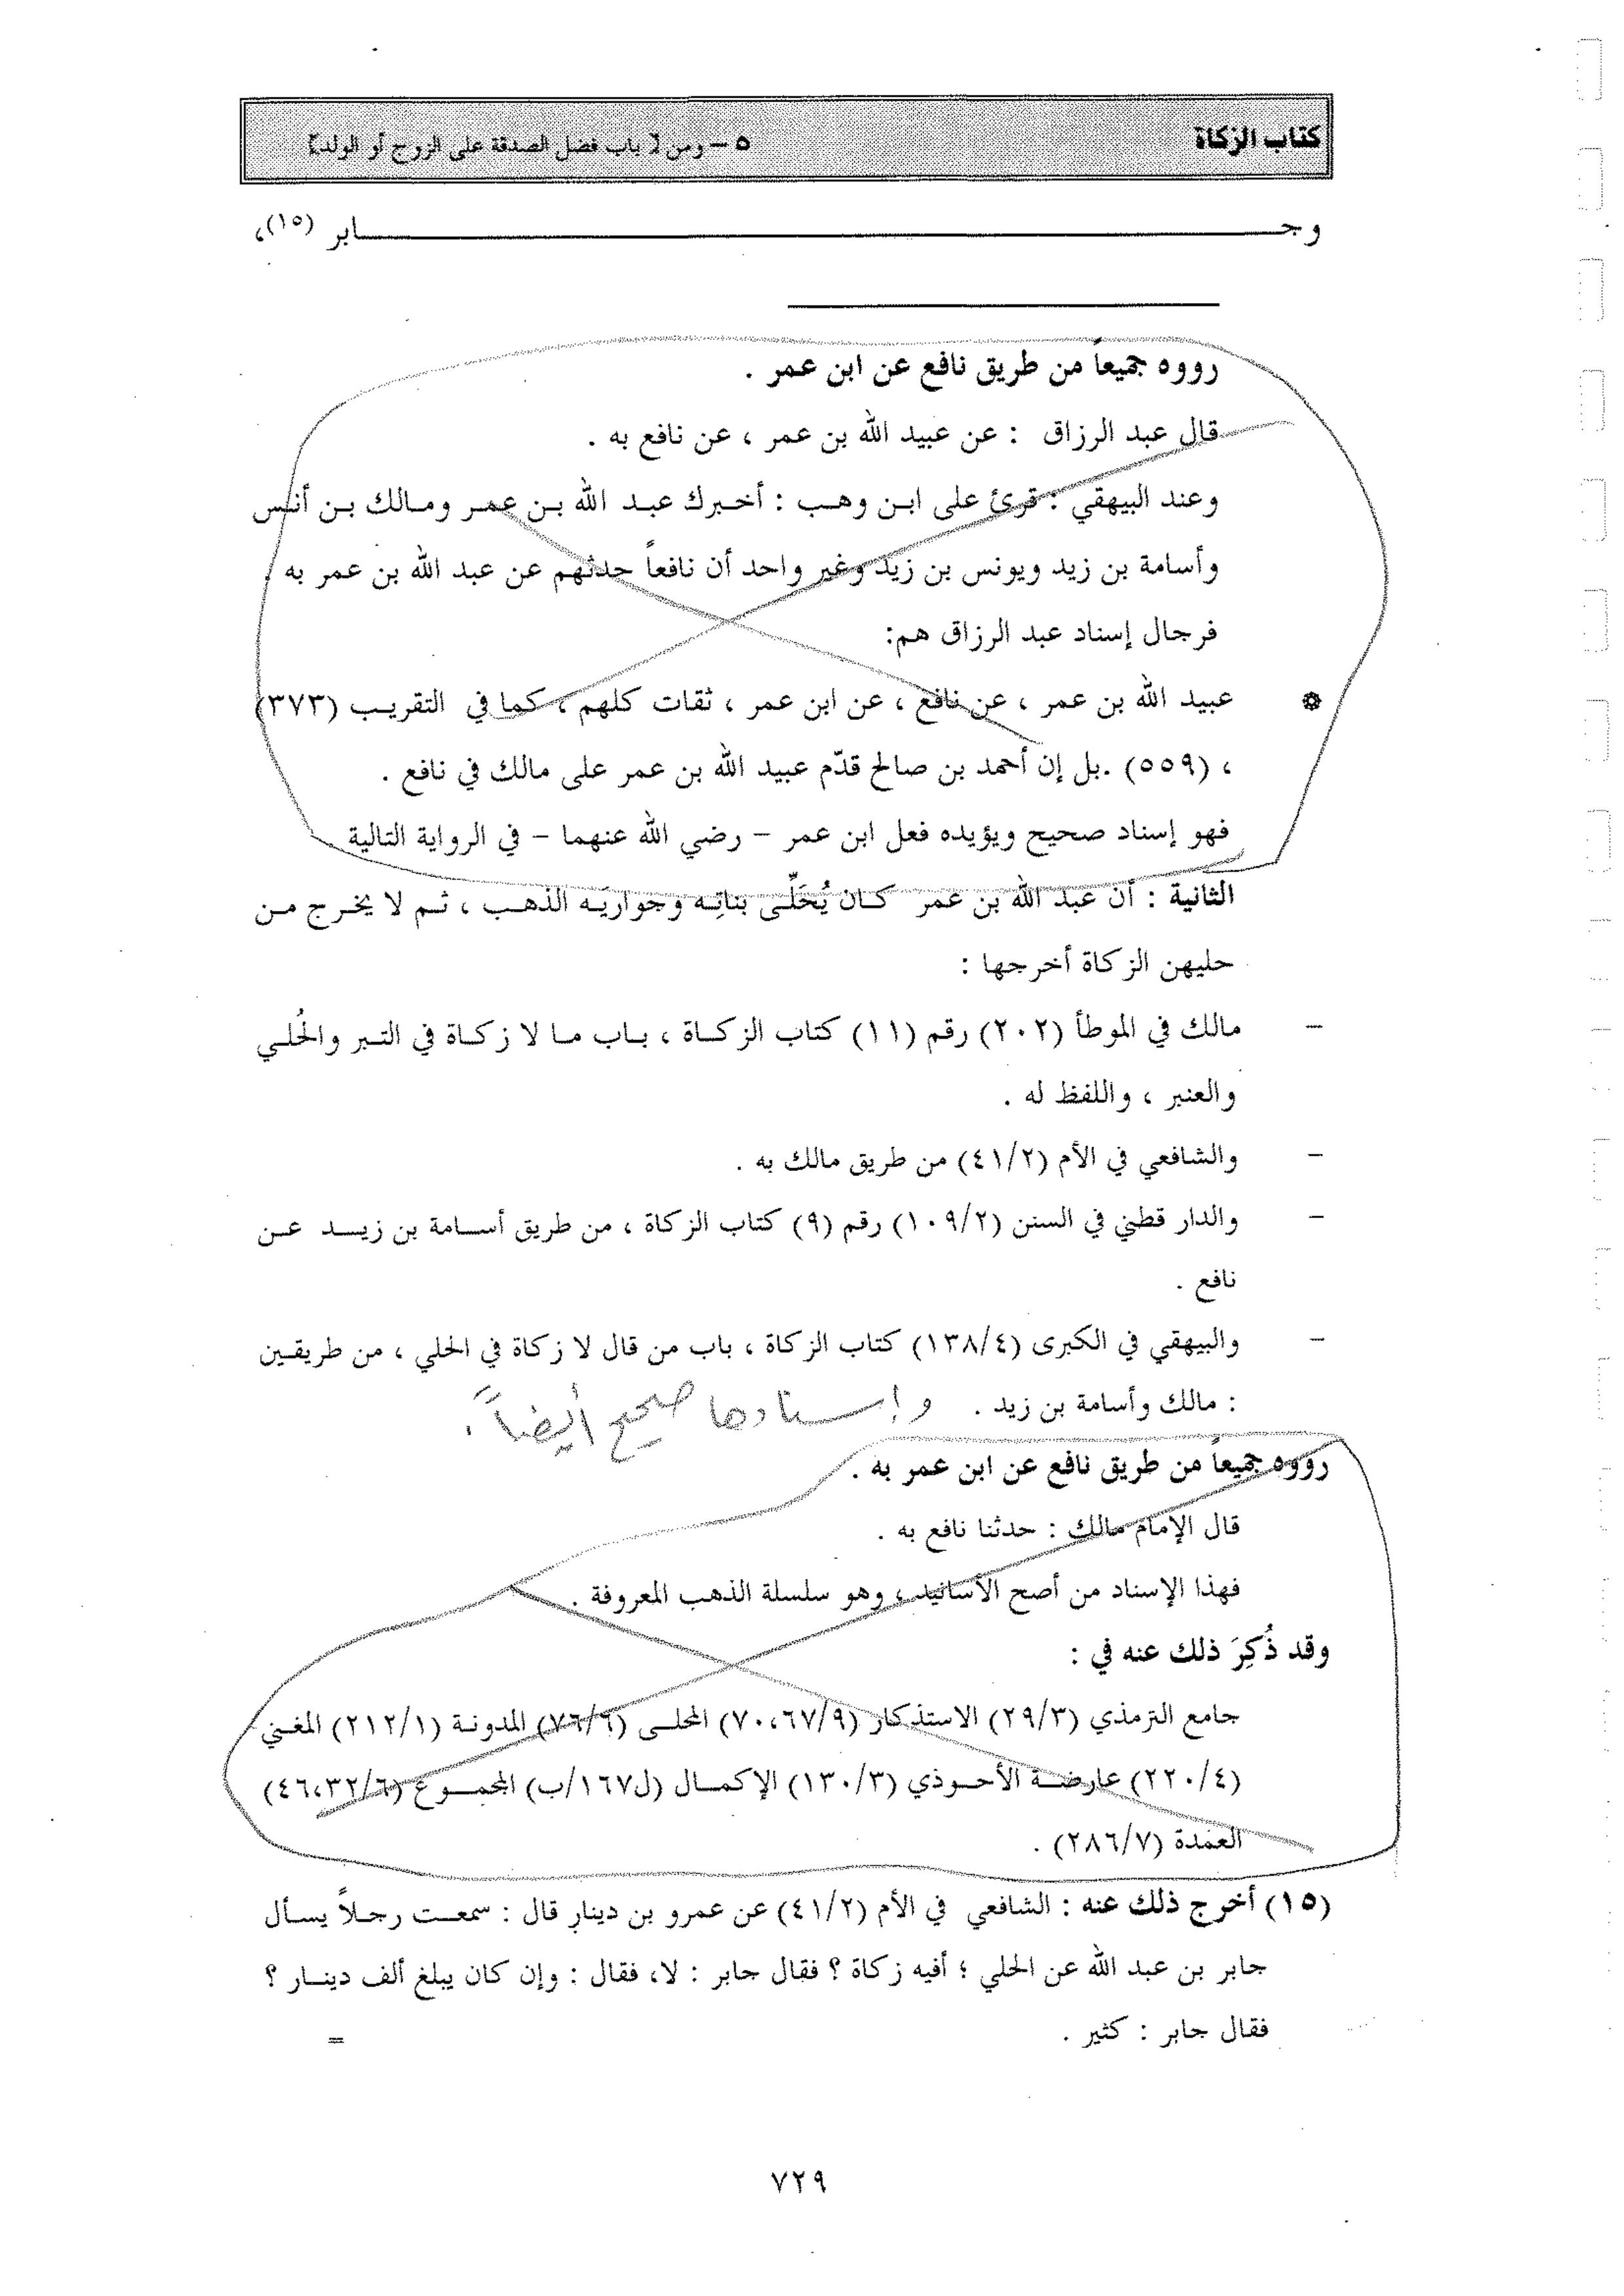 كتاب الزكاة ٥ – ومن [ باب فضل الصدقة على الزوج أو الولد]
وجـــــــــــابر (١٥)،
رووه جميعاً من طريق نافع عن ابن عمر .
قال عبد الرزاق : عن عبيد الله بن عمر ، عن نافع به .
وعند البيهقي : قرئ على ابن وهب : أخبرك عبد الله بن عمر ومالك بن أنس
وأسامة بن زيد ويونس بن زيد وغير واحد أن نافعاً حدثهم عن عبد الله بن عمر به .
فرجال إسناد عبد الرزاق هم:
عبيد الله بن عمر ، عن نافع ، عن ابن عمر ، ثقات كلهم ، كما في التقريب (٣٧٣)
، (٥٥٩) .بل إن أحمد بن صالح قدّم عبيد الله بن عمر على مالك في نافع .
فهو إسناد صحيح ويؤيده فعل ابن عمر – رضي الله عنهما – في الرواية التالية .
الثانية : أن عبد الله بن عمر كان يُحَلِّى بناتِه وجواريَه الذهب ، ثم لا يخرج من
حليهن الزكاة أخرجها :
– مالك في الموطأ (٢٠٢) رقم (١١) كتاب الزكاة ، باب ما لا زكاة في التبر والحُلي
والعنبر ، واللفظ له .
– والشافعي في الأم (٤١/٢) من طريق مالك به .
– والدار قطني في السنن (١٠٩/٢) رقم (٩) كتاب الزكاة ، من طريق أسامة بن زيد عن
نافع .
– والبيهقي في الكبرى (١٣٨/٤) كتاب الزكاة ، باب من قال لا زكاة في الحلي ، من طريقين
: مالك وأسامة بن زيد . وإسنادها صحيح أيضاً .
رووه جميعاً من طريق نافع عن ابن عمر به .
قال الإمام مالك : حدثنا نافع به .
فهذا الإسناد من أصح الأسانيد ، وهو سلسلة الذهب المعروفة .
وقد ذُكِرَ ذلك عنه في :
جامع الترمذي (٢٩/٣) الاستذكار (٧٠،٦٧/٩) المحلى (٧٦/٦) المدونة (٢١٢/١) المغني
(٢٢٠/٤) عارضة الأحوذي (١٣٠/٣) الإكمال (ل١٦٧/ب) المجموع (٤٦،٣٢/٦)
العمدة (٢٨٦/٧) .
(١٥) أخرج ذلك عنه : الشافعي في الأم (٤١/٢) عن عمرو بن دينار قال : سمعت رجلاً يسأل
جابر بن عبد الله عن الحلي ؛ أفيه زكاة ؟ فقال جابر : لا، فقال : وإن كان يبلغ ألف دينار ؟
فقال جابر : كثير .
=
٧٢٩